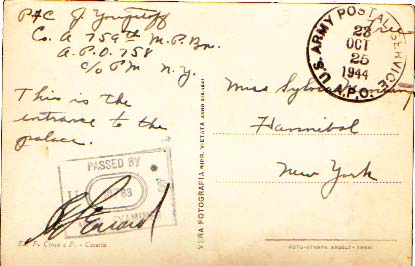 Pfc J.
Co. A 759th M.P. Bn.
A.P.O. 758
c/o PM n.y.
This is the
entrance to the
palace.
Free
U.S. ARMY POSTAL SERVICE
OCT
25
1944
A.P.O.
Miss Sylvia
Hannibal
New York
PASSED BY
VERA FOTOGRAFIA RIPR. VIETATA
Ed. F. Croce e F. - Caserta
FOTO-STAMPA ANGELI - TERNI